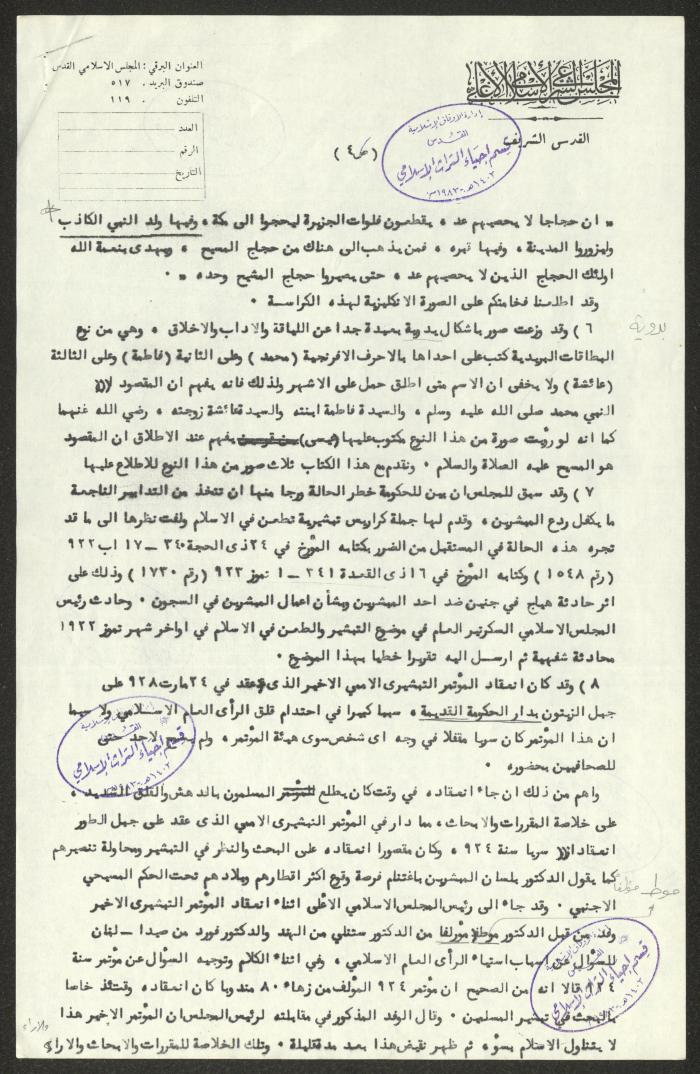 المجلس الشرعي الإسلامي الأعلى
القدس الشريف
العنوان البرقي : المجلس الاسلامي القدس
صندوق البريد . ٥١٧
التلفون . ١١٩
العدد
الرقم
التاريخ
إدارة الأوقاف الإسلامية
القدس
قسم إحياء التراث الإسلامي
١٤٠٣هـ - ١٩٨٣م
( ٤ )
" ان حجاجا لا يحصيهم عد ، يقطعون فلوات الجزيرة ليحجوا الى مكة ، وفيها ولد النبي الكاذب
وليزوروا المدينة ، وفيها قبره ، فمن يذهب الى هناك من حجاج المسيح ، ويهدى بنعمة الله
اولئك الحجاج الذين لا يحصيهم عد ، حتى يصيروا حجاج المسيح وحده " .
وقد اطلعنا فخامتكم على الصورة الانكليزية لهذه الكراسة .
٦ ) وقد وزعت صور باشكال يدوية بعيدة جدا عن اللياقة والاداب والاخلاق ، وهي من نوع
بدوية
البطاقات البريدية كتب على احداها بالاحرف الافرنجية ( محمد ) وعلى الثانية ( فاطمة ) وعلى الثالثة
( عائشة ) ولا يخفى ان الاسم متى اطلق حمل على الاشهر ولذلك فانه يفهم ان المقصود
النبي محمد صلى الله عليه وسلم ، والسيدة فاطمة ابنته والسيدة عائشة زوجته ، رضي الله عنهما
كما انه لو رؤيت صورة من هذا النوع مكتوب عليها ( عيسى ) يفهم عند الاطلاق ان المقصود
هو المسيح عليه الصلاة والسلام . ونقدم مع هذا الكتاب ثلاث صور من هذا النوع للاطلاع عليها
٧ ) وقد سبق للمجلس ان بين للحكومة خطر الحالة ورجا منها ان تتخذ من التدابير الناجعة
ما يكفل ردع المبشرين ، وقدم لها جملة كراريس تبشيرية تطعن في الاسلام ولفت نظرها الى ما قد
تجره هذه الحالة في المستقبل من الضرر بكتابه المؤرخ في ٢٤ ذى الحجة ٣٤٠ – ١٧ اب ٩٢٢
( رقم ١٥٤٨ ) وكتابه المؤرخ في ١٦ ذى القعدة ٣٤١ – ١ تموز ٩٢٣ ( رقم ١٧٣٠ ) وذلك على
اثر حادثة هياج في جنين ضد احد المبشرين وبشأن اعمال المبشرين في السجون . وحادث رئيس
المجلس الاسلامي السكرتير العام في موضوع التبشير والطعن في الاسلام في اواخر شهر تموز ١٩٢٢
محادثة شفهية ثم ارسل اليه تقريرا خطيا بهذا الموضوع .
٨ ) وقد كان انعقاد المؤتمر التبشيرى الاممي الاخير الذى عقد في ٢٤ مارت ٩٢٨ على
جبل الزيتون بدار الحكومة القديمة ، سببا كبيرا في احتدام قلق الرأى العام الاسلامي ولا سيما
ان هذا المؤتمر كان سريا مقفلا في وجه اى شخص سوى هيئة المؤتمر ، ولم يسمح لاحد حتى
للصحافيين بحضوره .
واهم من ذلك ان جاء انعقاده في وقت كان يطلع المسلمون بالدهش والقلق الشديد ،
على خلاصة المقررات والابحاث ، مما دار في المؤتمر التبشيرى الاممي الذى عقد على جبل الطور
سريا سنة ٩٢٤ ، وكان مقصورا انعقاده على البحث والنظر في التبشير ومحاولة تنصيرهم
كما يقول الدكتور بلسان المبشرين باغتنام فرصة وقوع اكثر اقطارهم وبلادهم تحت الحكم المسيحي
الاجنبي . وقد جاء الى رئيس المجلس الاسلامي الاعلى اثناء انعقاد المؤتمر التبشيرى الاخير
وفد من قبل الدكتور موط مؤلفا من الدكتور ستنلي من الهند والدكتور فورد من صيدا – لبنان
موط مؤلفا
للسؤال عن اسباب استياء الرأى العام الاسلامي ، وفي اثناء الكلام وتوجيه السؤال عن مؤتمر سنة
٩٢٤ قالا انه من الصحيح ان مؤتمر ٩٢٤ المؤلف من زهاء ٨٠ مندوبا كان انعقاده ، وقتئذ خاصا
بالبحث في تبشير المسلمين . وقال الوفد المذكور في مقابلته لرئيس المجلس ان المؤتمر الاخير هذا
لا يتناول الاسلام بسوء ، ثم ظهر نقيض هذا بعد مدة قليلة . وتلك الخلاصة للمقررات والابحاث والاراء
والاراء